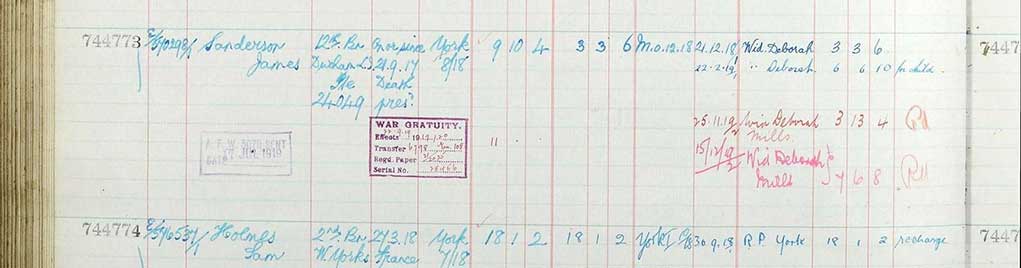 744773 Sanderson 12th. Bn on or since York 9 10 4 3 3 6 M.o.12.18 21.12.18 Wid. Deborah 3 3 6
James Durham L.I. 21.9.17 8/18 22.2.19 " Deborah 6 6 10 for child
Pte Death
24049 pres.
25.11.19 Wid Deborah 3 13 4
Mills.
WAR GRATUITY.
Effects
Transfer
Regd. Paper
Serial No.
11
A.F.W. 5070 SENT
DATE 17 JUL 1919
15/12/19 Wid Deborah
Mills 7 6 8
744774 Holmes 2nd. Bn 27.3.18 York 18 1 2 18 1 2 York 30.9.18 R.P. York 18 1 2 recharge
Sam W. Yorks France 7/18
7447
7447